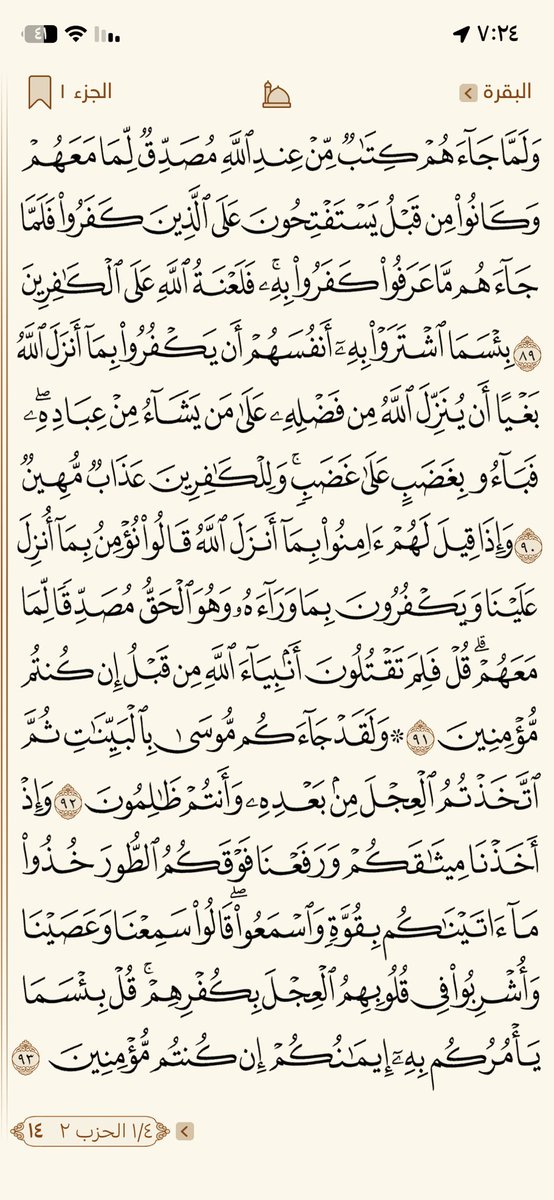 ٧:٢٤
٤١
البقرة
الجزء ١
وَلَمَّا جَآءَهُمۡ كِتَٰبٞ مِّنۡ عِندِ ٱللَّهِ مُصَدِّقٞ لِّمَا مَعَهُمۡ
وَكَانُواْ مِن قَبۡلُ يَسۡتَفۡتِحُونَ عَلَى ٱلَّذِينَ كَفَرُواْ فَلَمَّا
جَآءَهُم مَّا عَرَفُواْ كَفَرُواْ بِهِۦۚ فَلَعۡنَةُ ٱللَّهِ عَلَى ٱلۡكَٰفِرِينَ
٨٩ بِئۡسَمَا ٱشۡتَرَوۡاْ بِهِۦٓ أَنفُسَهُمۡ أَن يَكۡفُرُواْ بِمَآ أَنزَلَ ٱللَّهُ
بَغۡيًا أَن يُنَزِّلَ ٱللَّهُ مِن فَضۡلِهِۦ عَلَىٰ مَن يَشَآءُ مِنۡ عِبَادِهِۦۖ
فَبَآءُو بِغَضَبٍ عَلَىٰ غَضَبٖۚ وَلِلۡكَٰفِرِينَ عَذَابٞ مُّهِينٞ
٩٠ وَإِذَا قِيلَ لَهُمۡ ءَامِنُواْ بِمَآ أَنزَلَ ٱللَّهُ قَالُواْ نُؤۡمِنُ بِمَآ أُنزِلَ
عَلَيۡنَا وَيَكۡفُرُونَ بِمَا وَرَآءَهُۥ وَهُوَ ٱلۡحَقُّ مُصَدِّقٗا لِّمَا
مَعَهُمۡۗ قُلۡ فَلِمَ تَقۡتُلُونَ أَنۢبِيَآءَ ٱللَّهِ مِن قَبۡلُ إِن كُنتُم
مُّؤۡمِنِينَ ٩١ ۞ وَلَقَدۡ جَآءَكُم مُّوسَىٰ بِٱلۡبَيِّنَٰتِ ثُمَّ
ٱتَّخَذۡتُمُ ٱلۡعِجۡلَ مِنۢ بَعۡدِهِۦ وَأَنتُمۡ ظَٰلِمُونَ ٩٢ وَإِذۡ
أَخَذۡنَا مِيثَٰقَكُمۡ وَرَفَعۡنَا فَوۡقَكُمُ ٱلطُّورَ خُذُواْ
مَآ ءَاتَيۡنَٰكُم بِقُوَّةٖ وَٱسۡمَعُواْۖ قَالُواْ سَمِعۡنَا وَعَصَيۡنَا
وَأُشۡرِبُواْ فِي قُلُوبِهِمُ ٱلۡعِجۡلَ بِكُفۡرِهِمۡۚ قُلۡ بِئۡسَمَا
يَأۡمُرُكُم بِهِۦٓ إِيمَٰنُكُمۡ إِن كُنتُم مُّؤۡمِنِينَ ٩٣
١/٤ الحزب ٢ ١٤